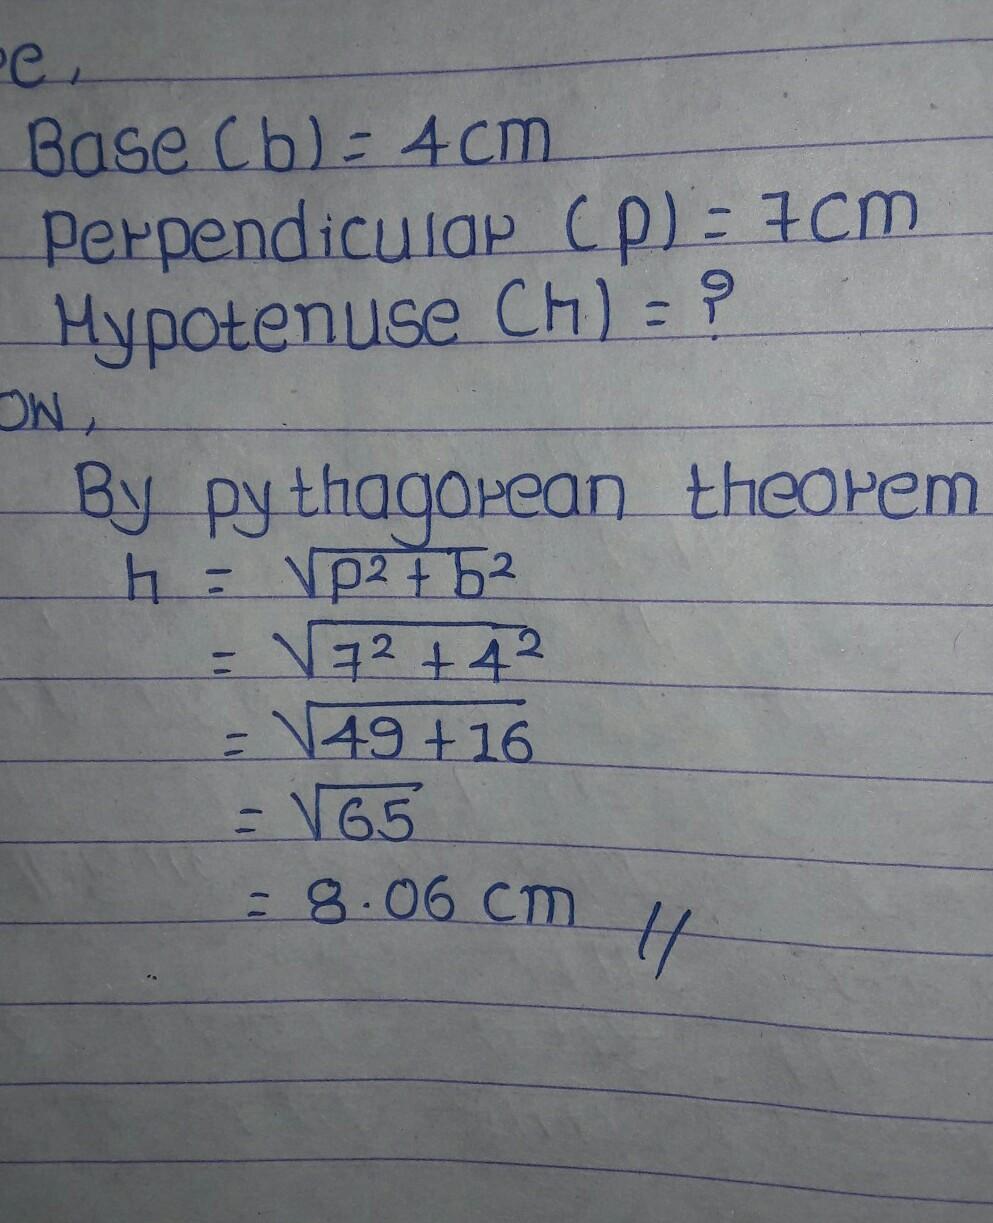 Base (b) = 4cm
Perpendicular (p) = 7cm
Hypotenuse (h) = ?
By pythagorean theorem
h = √p² + b²
= √7² + 4²
= √49 + 16
= √65
= 8.06 cm //